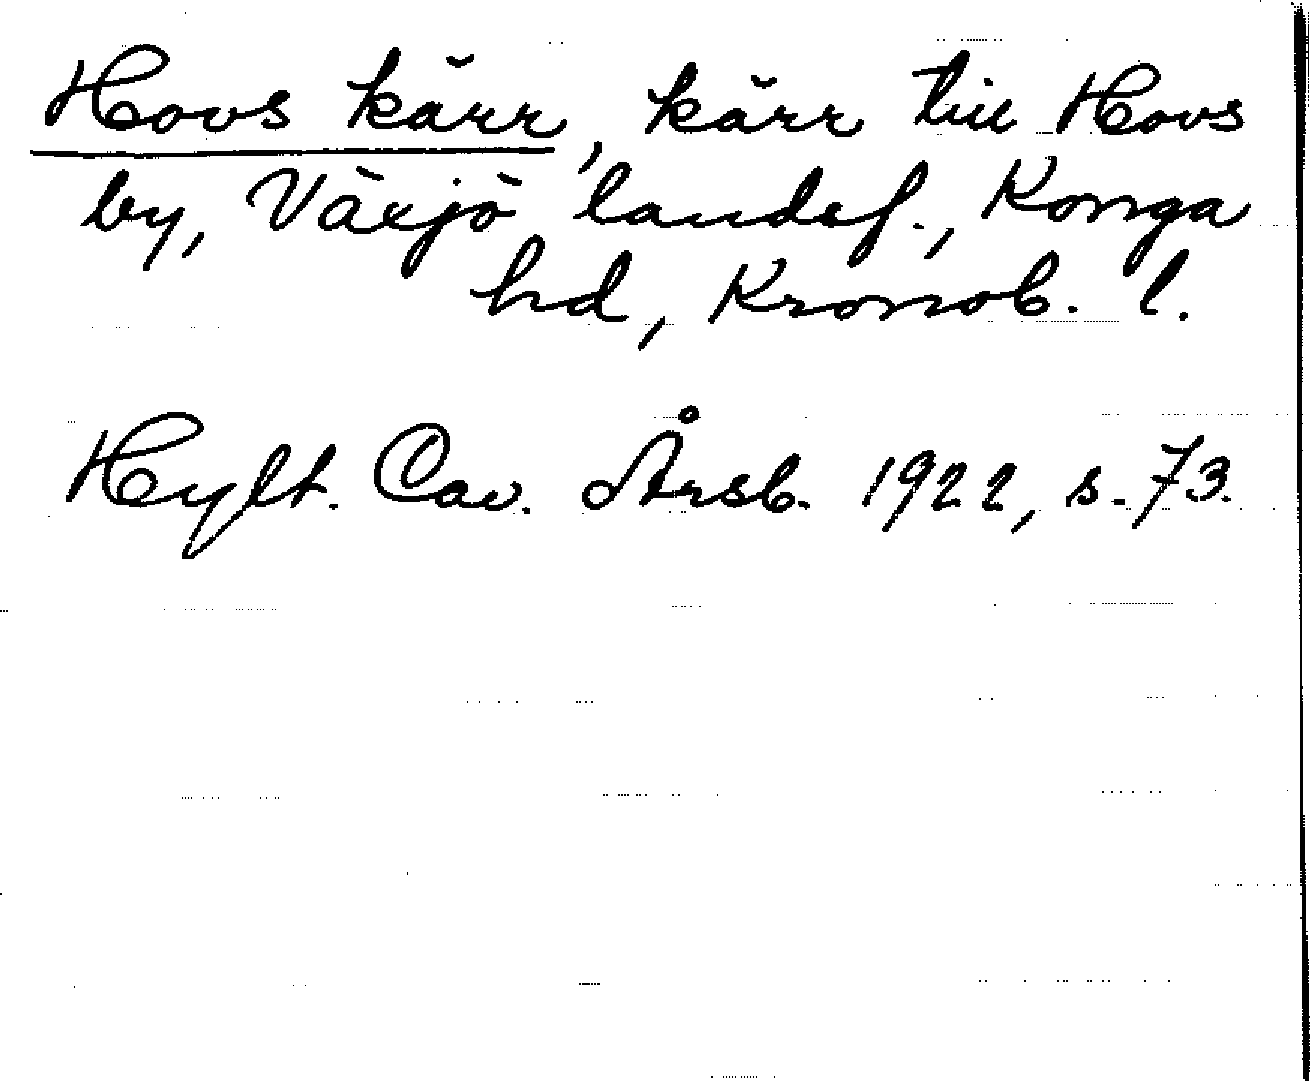 Hovs kärr, kärr till Hovs
by, Växjö landsf., Konga
hd, Kronob. l.
Hylt. Cav. Årsb. 1922, s. 73.